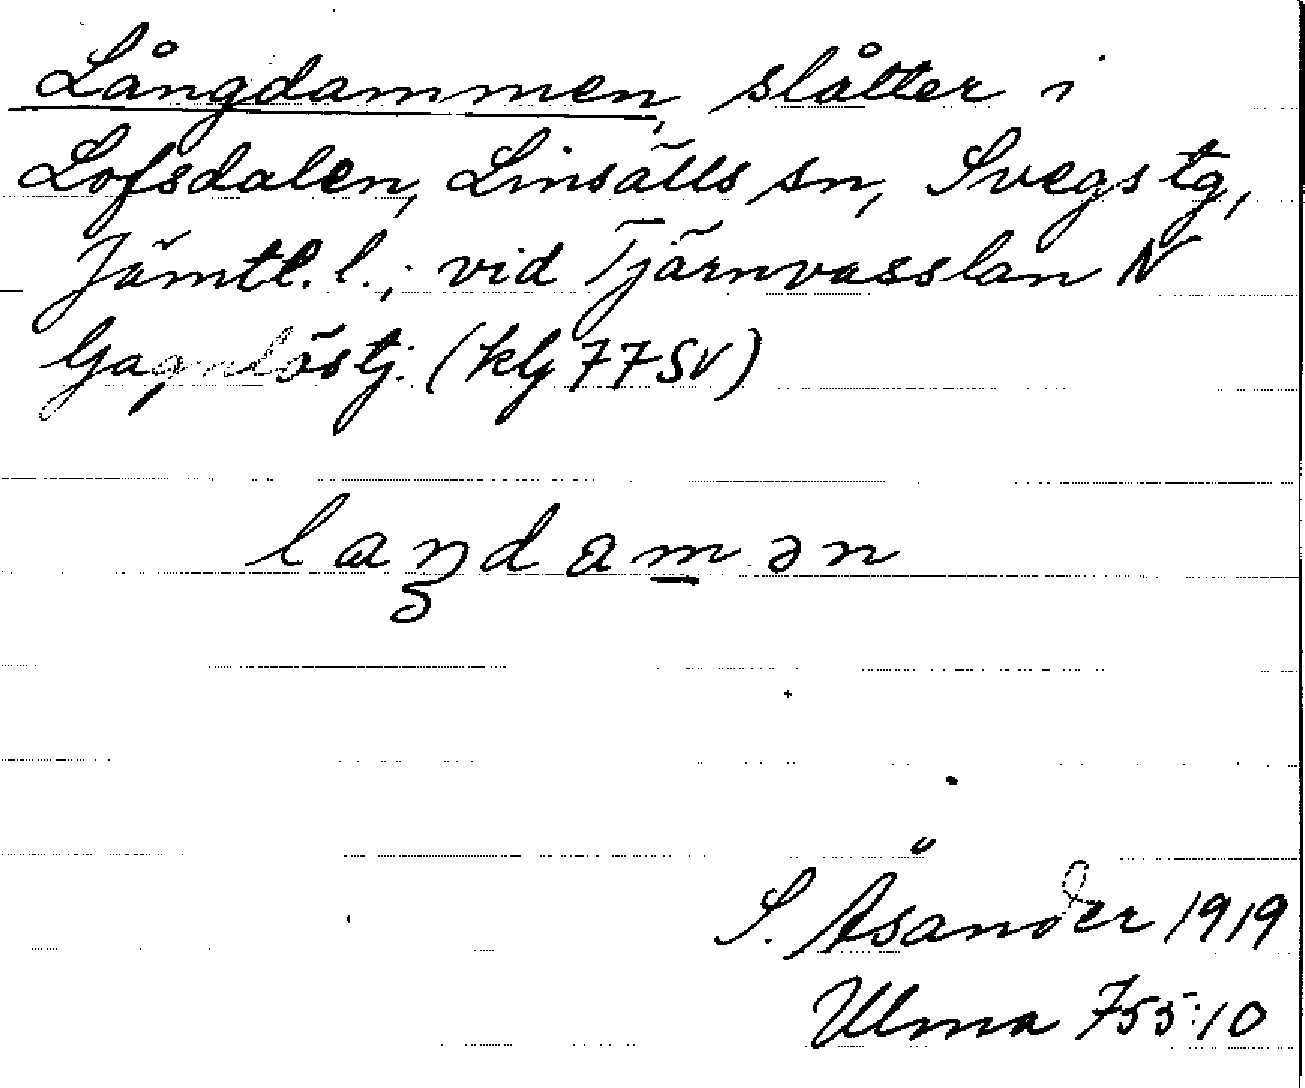 Långdammen, slåtter i
Lofsdalen, Linsälls sn, Svegs tg,
Jämtl. l.; vid Tjärnvasslan N
Gagnlöstj. (kbj 77SV)
laŋdamən
S. Åsander 1919
Ulma 755:10